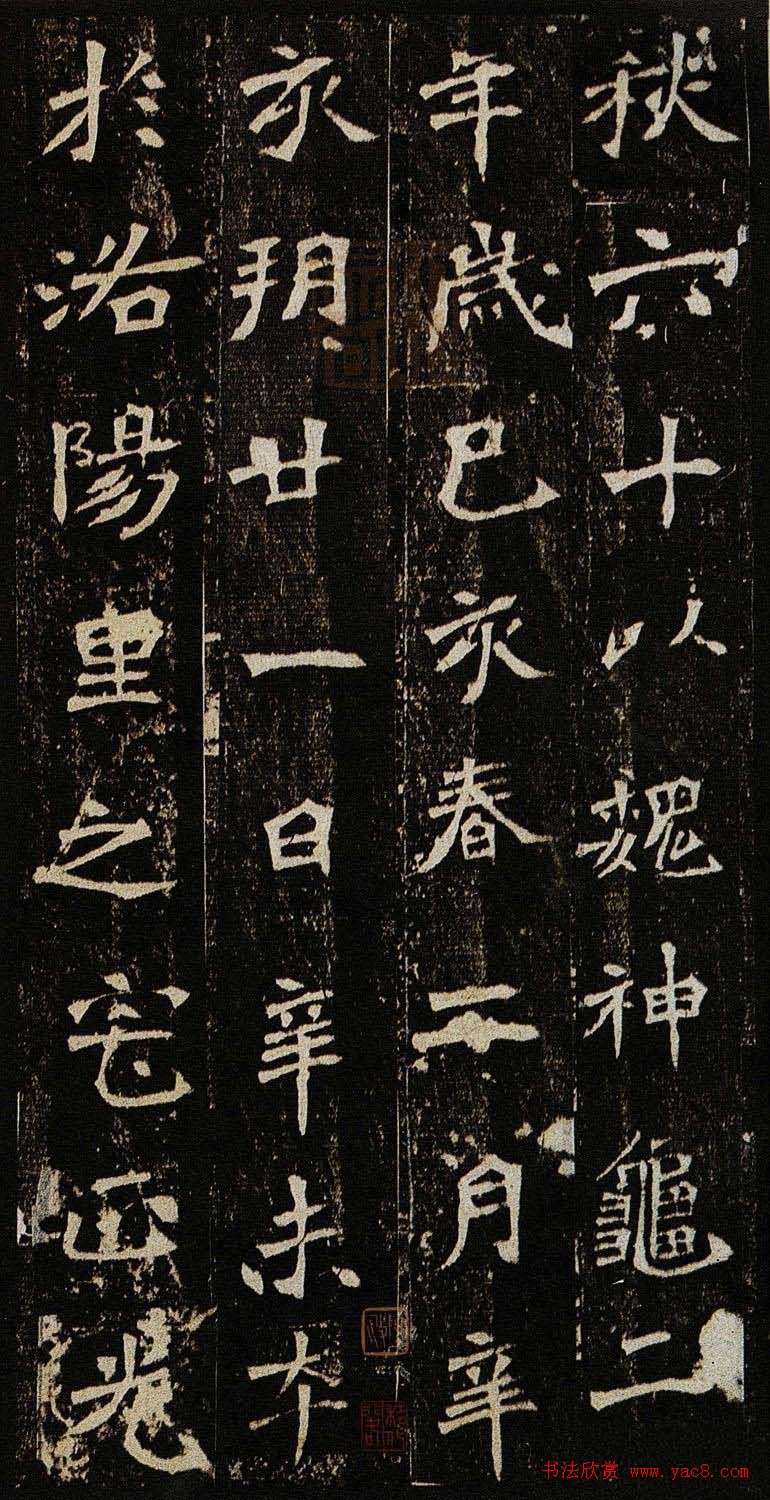 秋六十以魏神龜二
年歲巳亥春二月辛
亥朔廿一日辛未卒
於洛陽里之宅正光
书法欣赏 www.yac8.com